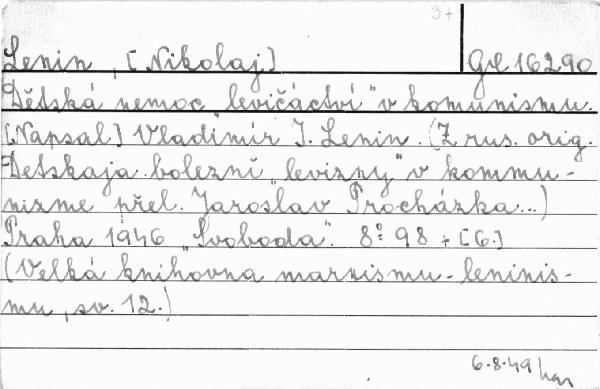 3+
Lenin, [Nikolaj] Gd 16290
Dětská nemoc „levičáctví" v komunismu.
[Napsal] Vladimír I. Lenin. (Z rus. orig.
Detskaja bolezní „levizny" v kommu-
nizme přel. Jaroslav Procházka...)
Praha 1946 „Svoboda". 8° 98 + [6.]
(Velká knihovna marxismu-leninis-
mu, sv. 12.)
6.8.49